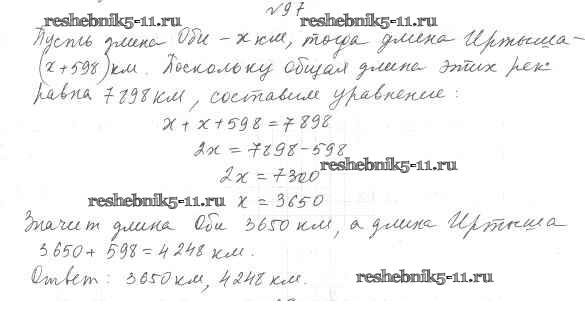 №97
reshebnik5-11.ru reshebnik5-11.ru
Пусть длина Оби - x км, тогда длина Иртыша -
(x+598) км. Поскольку общая длина этих рек
равна 7898 км, составим уравнение:
x + x + 598 = 7898
2x = 7898 - 598
reshebnik5-11.ru
2x = 7300
reshebnik5-11.ru
x = 3650
Значит длина Оби 3650 км, а длина Иртыша
3650 + 598 = 4248 км.
Ответ: 3650 км, 4248 км.
reshebnik5-11.ru